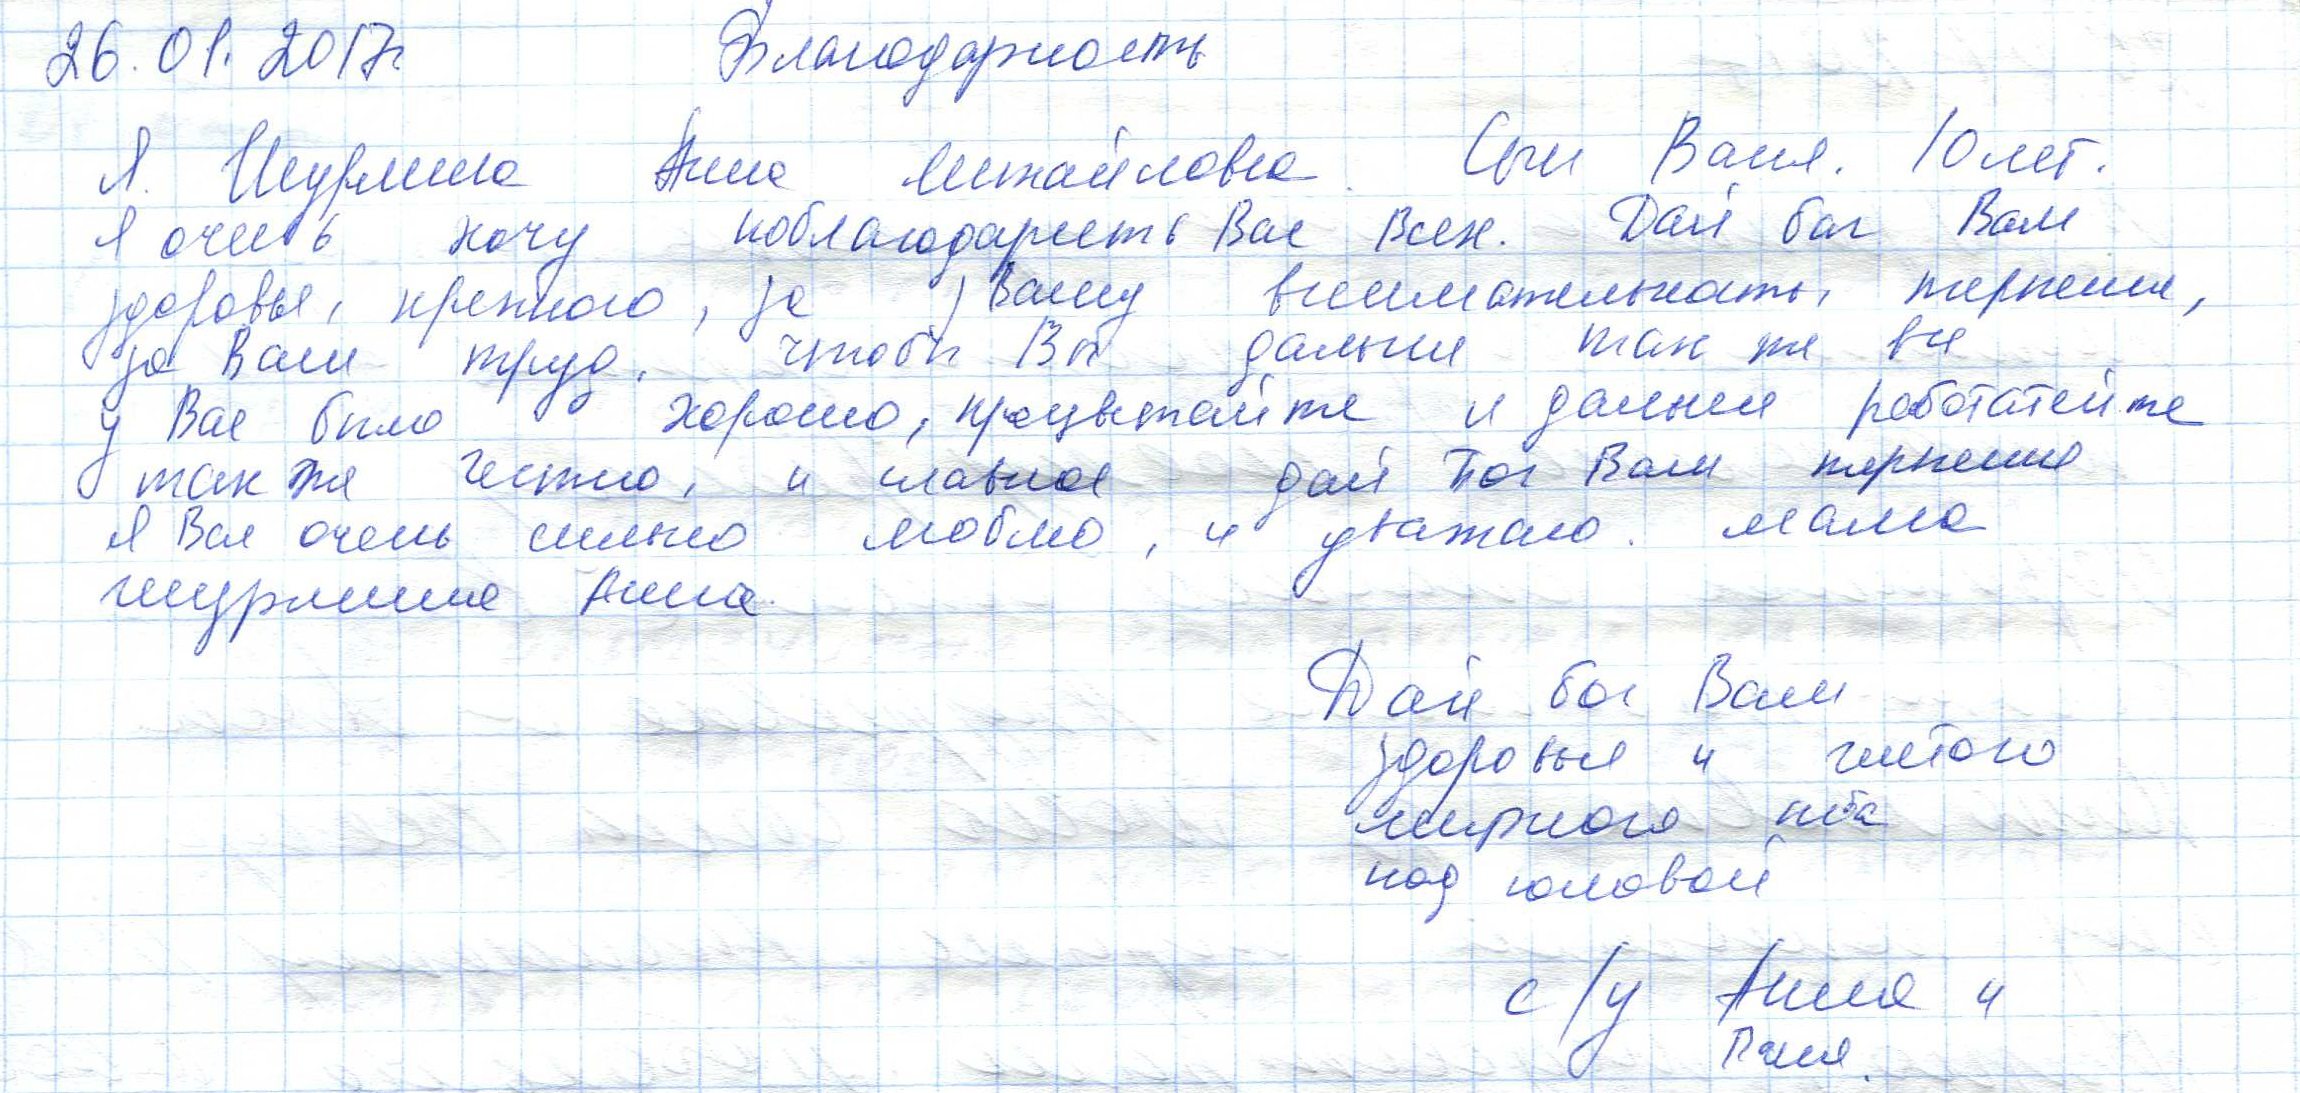 26.01.2017г. Благодарность
Я. Шурмина Анна Михайловна. Сын Ваня. 10 лет.
Я очень хочу поблагодарить Вас Всех. Дай бог Вам
здоровья, крепкого, за Вашу внимательность, терпения,
за Ваш труд. чтобы Вы дальше так же все
у Вас было хорошо, процветайте и дальше работатейте
так же честно, и главное дай Бог Вам терпения
Я Вас очень сильно люблю, и уважаю. мама
Анна.
Дай бог Вам
здоровья и чистого
мирного неба
под головой
с/у Анна и
Ваня.